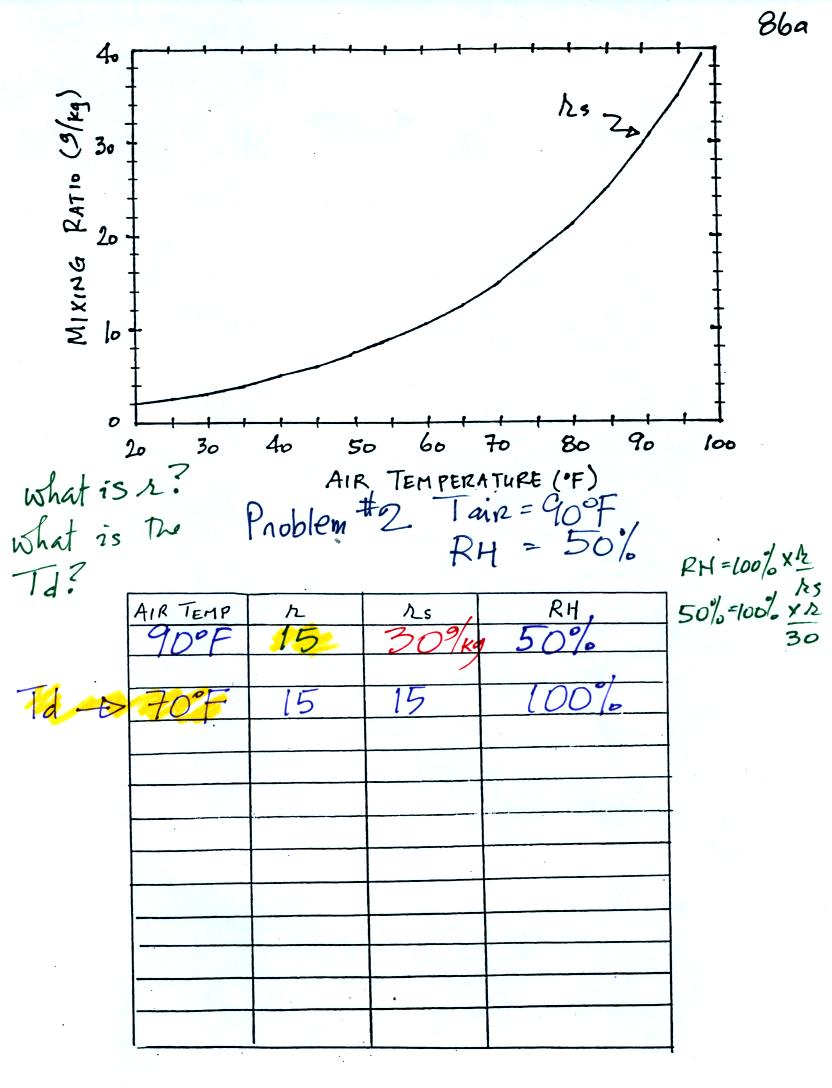 86a
40
30
20
10
0
MIXING RATIO (g/kg)
rs
20 30 40 50 60 70 80 90 100
AIR TEMPERATURE (°F)
what is r?
what is the
Td?
Problem #2 Tair = 90°F
RH = 50%
RH = 100% × r/rs
50% = 100% × r/30
AIR TEMP r rs RH
90°F 15 30 g/kg 50%
Td → 70°F 15 15 100%